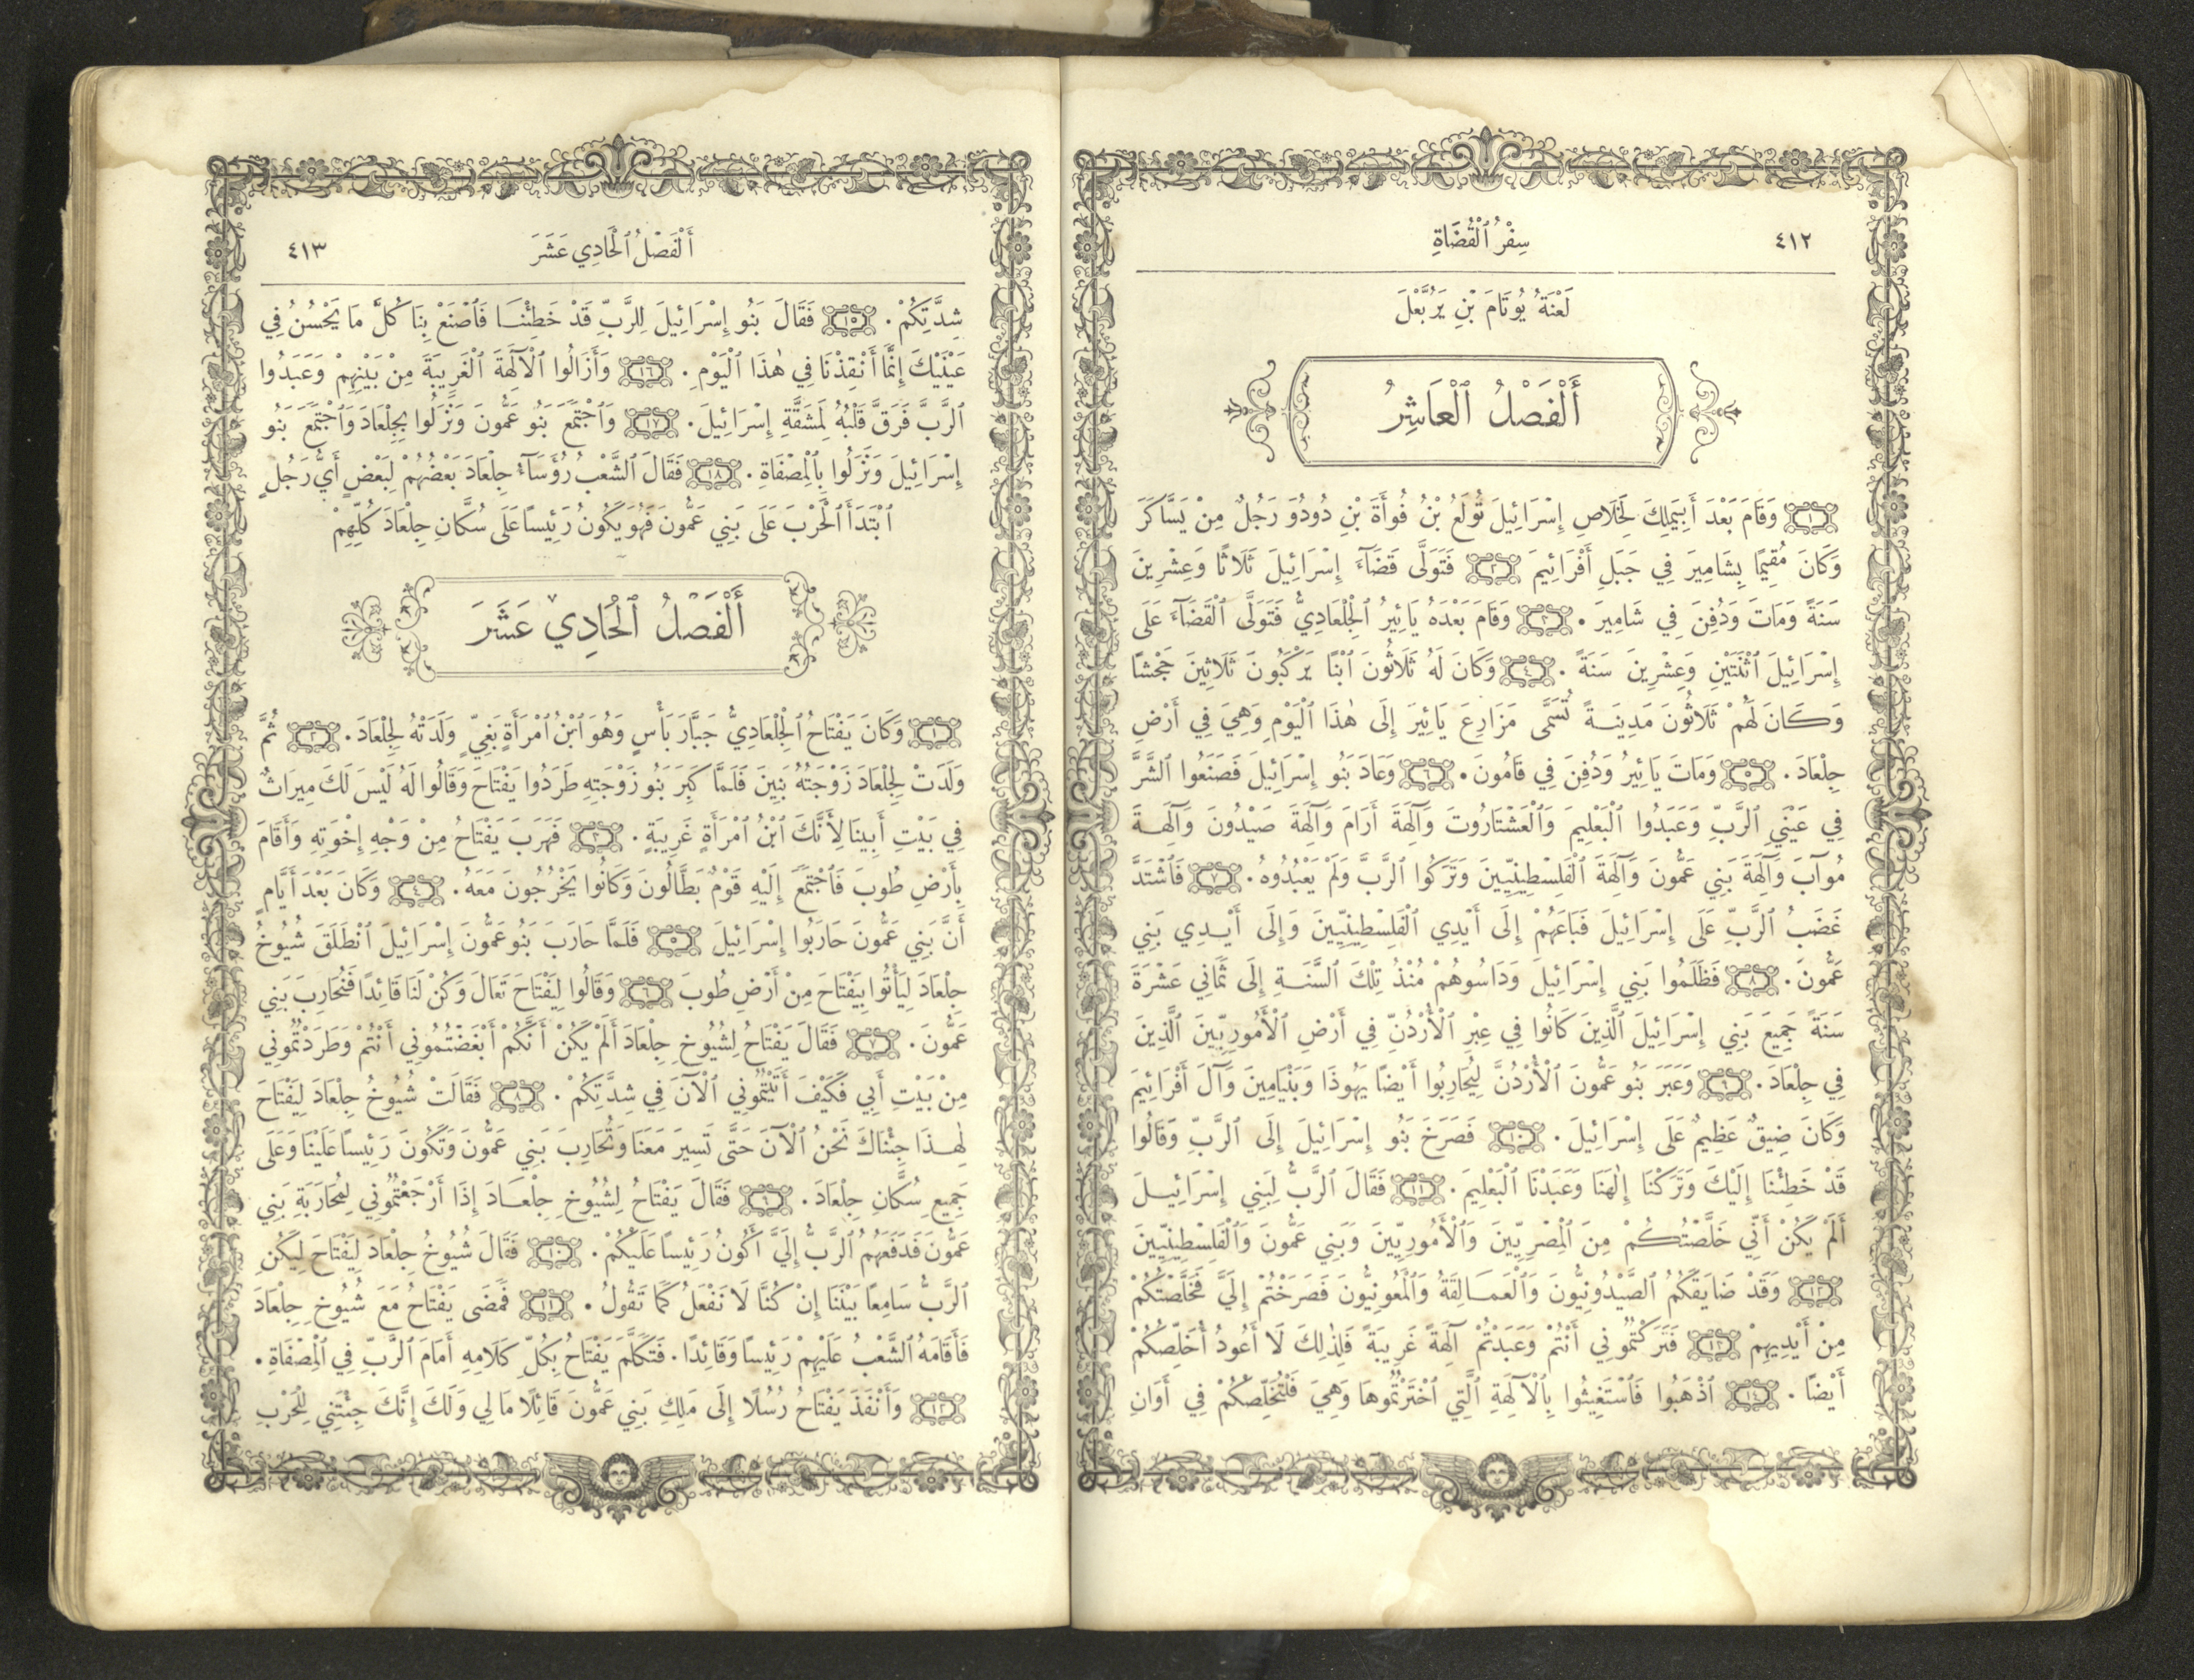 ٤١٢
سِفْرُ ٱلْقُضَاةِ
لَعْنَةُ يُوتَامَ بْنِ يَرُبَّعْلَ
أَلْفَصْلُ ٱلْعَاشِرُ
١ وَقَامَ بَعْدَ أَبِيمَلِكَ لِخَلَاصِ إِسْرَائِيلَ تُولَعُ بْنُ فُوأَةَ بْنِ دُودُوَ رَجُلٌ مِنْ يَسَّاكَرَ
وَكَانَ مُقِيمًا بِشَامِيرَ فِي جَبَلِ أَفْرَائِيمَ ٢ فَتَوَلَّى قَضَآءَ إِسْرَائِيلَ ثَلَاثًا وَعِشْرِينَ
سَنَةً وَمَاتَ وَدُفِنَ فِي شَامِيرَ . ٣ وَقَامَ بَعْدَهُ يَائِيرُ ٱلْجِلْعَادِيُّ فَتَوَلَّى ٱلْقَضَآءَ عَلَى
إِسْرَائِيلَ ٱثْنَتَيْنِ وَعِشْرِينَ سَنَةً . ٤ وَكَانَ لَهُ ثَلَاثُونَ ٱبْنًا يَرْكَبُونَ ثَلَاثِينَ جَحْشًا
وَكَانَ لَهُمْ ثَلَاثُونَ مَدِينَةً تُسَمَّى مَزَارِعَ يَائِيرَ إِلَى هٰذَا ٱلْيَوْمِ وَهِيَ فِي أَرْضِ
جِلْعَادَ . ٥ وَمَاتَ يَائِيرُ وَدُفِنَ فِي قَامُونَ . ٦ وَعَادَ بَنُو إِسْرَائِيلَ فَصَنَعُوا ٱلشَّرَّ
فِي عَيْنَيِ ٱلرَّبِّ وَعَبَدُوا ٱلْبَعْلِيمَ وَٱلْعَشْتَارُوتَ وَآلِهَةَ أَرَامَ وَآلِهَةَ صَيْدُونَ وَآلِهَةَ
مُوآبَ وَآلِهَةَ بَنِي عَمُّونَ وَآلِهَةَ ٱلْفَلِسْطِينِيِّينَ وَتَرَكُوا ٱلرَّبَّ وَلَمْ يَعْبُدُوهُ . ٧ فَٱشْتَدَّ
غَضَبُ ٱلرَّبِّ عَلَى إِسْرَائِيلَ فَبَاعَهُمْ إِلَى أَيْدِي ٱلْفَلِسْطِينِيِّينَ وَإِلَى أَيْدِي بَنِي
عَمُّونَ . ٨ فَظَلَمُوا بَنِي إِسْرَائِيلَ وَدَاسُوهُمْ مُنْذُ تِلْكَ ٱلسَّنَةِ إِلَى ثَمَانِي عَشْرَةَ
سَنَةً جَمِيعَ بَنِي إِسْرَائِيلَ ٱلَّذِينَ كَانُوا فِي عِبْرِ ٱلْأُرْدُنِّ فِي أَرْضِ ٱلْأَمُورِيِّينَ ٱلَّذِينَ
فِي جِلْعَادَ . ٩ وَعَبَرَ بَنُو عَمُّونَ ٱلْأُرْدُنَّ لِيُحَارِبُوا أَيْضًا يَهُوذَا وَبَنْيَامِينَ وَآلَ أَفْرَائِيمَ
وَكَانَ ضِيقٌ عَظِيمٌ عَلَى إِسْرَائِيلَ . ١٠ فَصَرَخَ بَنُو إِسْرَائِيلَ إِلَى ٱلرَّبِّ وَقَالُوا
قَدْ خَطِئْنَا إِلَيْكَ وَتَرَكْنَا إِلٰهَنَا وَعَبَدْنَا ٱلْبَعْلِيمَ . ١١ فَقَالَ ٱلرَّبُّ لِبَنِي إِسْرَائِيلَ
أَلَمْ يَكُنْ أَنِّي خَلَّصْتُكُمْ مِنَ ٱلْمِصْرِيِّينَ وَٱلْأَمُورِيِّينَ وَبَنِي عَمُّونَ وَٱلْفَلِسْطِينِيِّينَ
١٢ وَقَدْ ضَايَقَكُمُ ٱلصَّيْدُونِيُّونَ وَٱلْعَمَالِقَةُ وَٱلْمَعُونِيُّونَ فَصَرَخْتُمْ إِلَيَّ فَخَلَّصْتُكُمْ
مِنْ أَيْدِيهِمْ ١٣ فَتَرَكْتُمُونِي أَنْتُمْ وَعَبَدْتُمْ آلِهَةً غَرِيبَةً فَلِذٰلِكَ لَا أَعُودُ أُخَلِّصُكُمْ
أَيْضًا . ١٤ ٱذْهَبُوا فَٱسْتَغِيثُوا بِٱلْآلِهَةِ ٱلَّتِي ٱخْتَرْتُمُوهَا وَهِيَ فَلْتُخَلِّصْكُمْ فِي أَوَانِ
أَلْفَصْلُ ٱلْحَادِي عَشَرَ
٤١٣
شِدَّتِكُمْ . ١٥ فَقَالَ بَنُو إِسْرَائِيلَ لِلرَّبِّ قَدْ خَطِئْنَا فَٱصْنَعْ بِنَا كُلَّ مَا يَحْسُنُ فِي
عَيْنَيْكَ إِنَّمَا أَنْقِذْنَا فِي هٰذَا ٱلْيَوْمِ . ١٦ وَأَزَالُوا ٱلْآلِهَةَ ٱلْغَرِيبَةَ مِنْ بَيْنِهِمْ وَعَبَدُوا
ٱلرَّبَّ فَرَقَّ قَلْبُهُ لِمَشَقَّةِ إِسْرَائِيلَ . ١٧ وَٱجْتَمَعَ بَنُو عَمُّونَ وَنَزَلُوا بِجِلْعَادَ وَٱجْتَمَعَ بَنُو
إِسْرَائِيلَ وَنَزَلُوا بِٱلْمِصْفَاةِ . ١٨ فَقَالَ ٱلشَّعْبُ رُؤَسَآءُ جِلْعَادَ بَعْضُهُمْ لِبَعْضٍ أَيُّ رَجُلٍ
ٱبْتَدَأَ ٱلْحَرْبَ عَلَى بَنِي عَمُّونَ فَهُوَ يَكُونُ رَئِيسًا عَلَى سُكَّانِ جِلْعَادَ كُلِّهِمْ
أَلْفَصْلُ ٱلْحَادِي عَشَرَ
١ وَكَانَ يَفْتَاحُ ٱلْجِلْعَادِيُّ جَبَّارَ بَأْسٍ وَهُوَ ٱبْنُ ٱمْرَأَةٍ بَغِيٍّ وَلَدَتْهُ لِجِلْعَادَ . ٢ ثُمَّ
وَلَدَتْ لِجِلْعَادَ زَوْجَتُهُ بَنِينَ فَلَمَّا كَبِرَ بَنُو زَوْجَتِهِ طَرَدُوا يَفْتَاحَ وَقَالُوا لَهُ لَيْسَ لَكَ مِيرَاثٌ
فِي بَيْتِ أَبِينَا لِأَنَّكَ ٱبْنُ ٱمْرَأَةٍ غَرِيبَةٍ . ٣ فَهَرَبَ يَفْتَاحُ مِنْ وَجْهِ إِخْوَتِهِ وَأَقَامَ
بِأَرْضِ طُوبَ فَٱجْتَمَعَ إِلَيْهِ قَوْمٌ بَطَّالُونَ وَكَانُوا يَخْرُجُونَ مَعَهُ . ٤ وَكَانَ بَعْدَ أَيَّامٍ
أَنَّ بَنِي عَمُّونَ حَارَبُوا إِسْرَائِيلَ ٥ فَلَمَّا حَارَبَ بَنُو عَمُّونَ إِسْرَائِيلَ ٱنْطَلَقَ شُيُوخُ
جِلْعَادَ لِيَأْتُوا بِيَفْتَاحَ مِنْ أَرْضِ طُوبَ ٦ وَقَالُوا لِيَفْتَاحَ تَعَالَ وَكُنْ لَنَا قَائِدًا فَنُحَارِبَ بَنِي
عَمُّونَ . ٧ فَقَالَ يَفْتَاحُ لِشُيُوخِ جِلْعَادَ أَلَمْ يَكُنْ أَنَّكُمْ أَبْغَضْتُمُونِي أَنْتُمْ وَطَرَدْتُمُونِي
مِنْ بَيْتِ أَبِي فَكَيْفَ أَتَيْتُمُونِي ٱلْآنَ فِي شِدَّتِكُمْ . ٨ فَقَالَتْ شُيُوخُ جِلْعَادَ لِيَفْتَاحَ
لِهٰذَا جِئْنَاكَ نَحْنُ ٱلْآنَ حَتَّى تَسِيرَ مَعَنَا وَتُحَارِبَ بَنِي عَمُّونَ وَتَكُونَ رَئِيسًا عَلَيْنَا وَعَلَى
جَمِيعِ سُكَّانِ جِلْعَادَ . ٩ فَقَالَ يَفْتَاحُ لِشُيُوخِ جِلْعَادَ إِذَا أَرْجَعْتُمُونِي لِمُحَارَبَةِ بَنِي
عَمُّونَ فَدَفَعَهُمُ ٱلرَّبُّ إِلَيَّ أَكُونُ رَئِيسًا عَلَيْكُمْ . ١٠ فَقَالَ شُيُوخُ جِلْعَادَ لِيَفْتَاحَ لِيَكُنِ
ٱلرَّبُّ سَامِعًا بَيْنَنَا إِنْ كُنَّا لَا نَفْعَلُ كَمَا تَقُولُ . ١١ فَمَضَى يَفْتَاحُ مَعَ شُيُوخِ جِلْعَادَ
فَأَقَامَهُ ٱلشَّعْبُ عَلَيْهِمْ رَئِيسًا وَقَائِدًا . فَتَكَلَّمَ يَفْتَاحُ بِكُلِّ كَلَامِهِ أَمَامَ ٱلرَّبِّ فِي ٱلْمِصْفَاةِ .
١٢ وَأَنْفَذَ يَفْتَاحُ رُسُلًا إِلَى مَلِكِ بَنِي عَمُّونَ قَائِلًا مَا لِي وَلَكَ إِنَّكَ جِئْتَنِي لِلْحَرْبِ